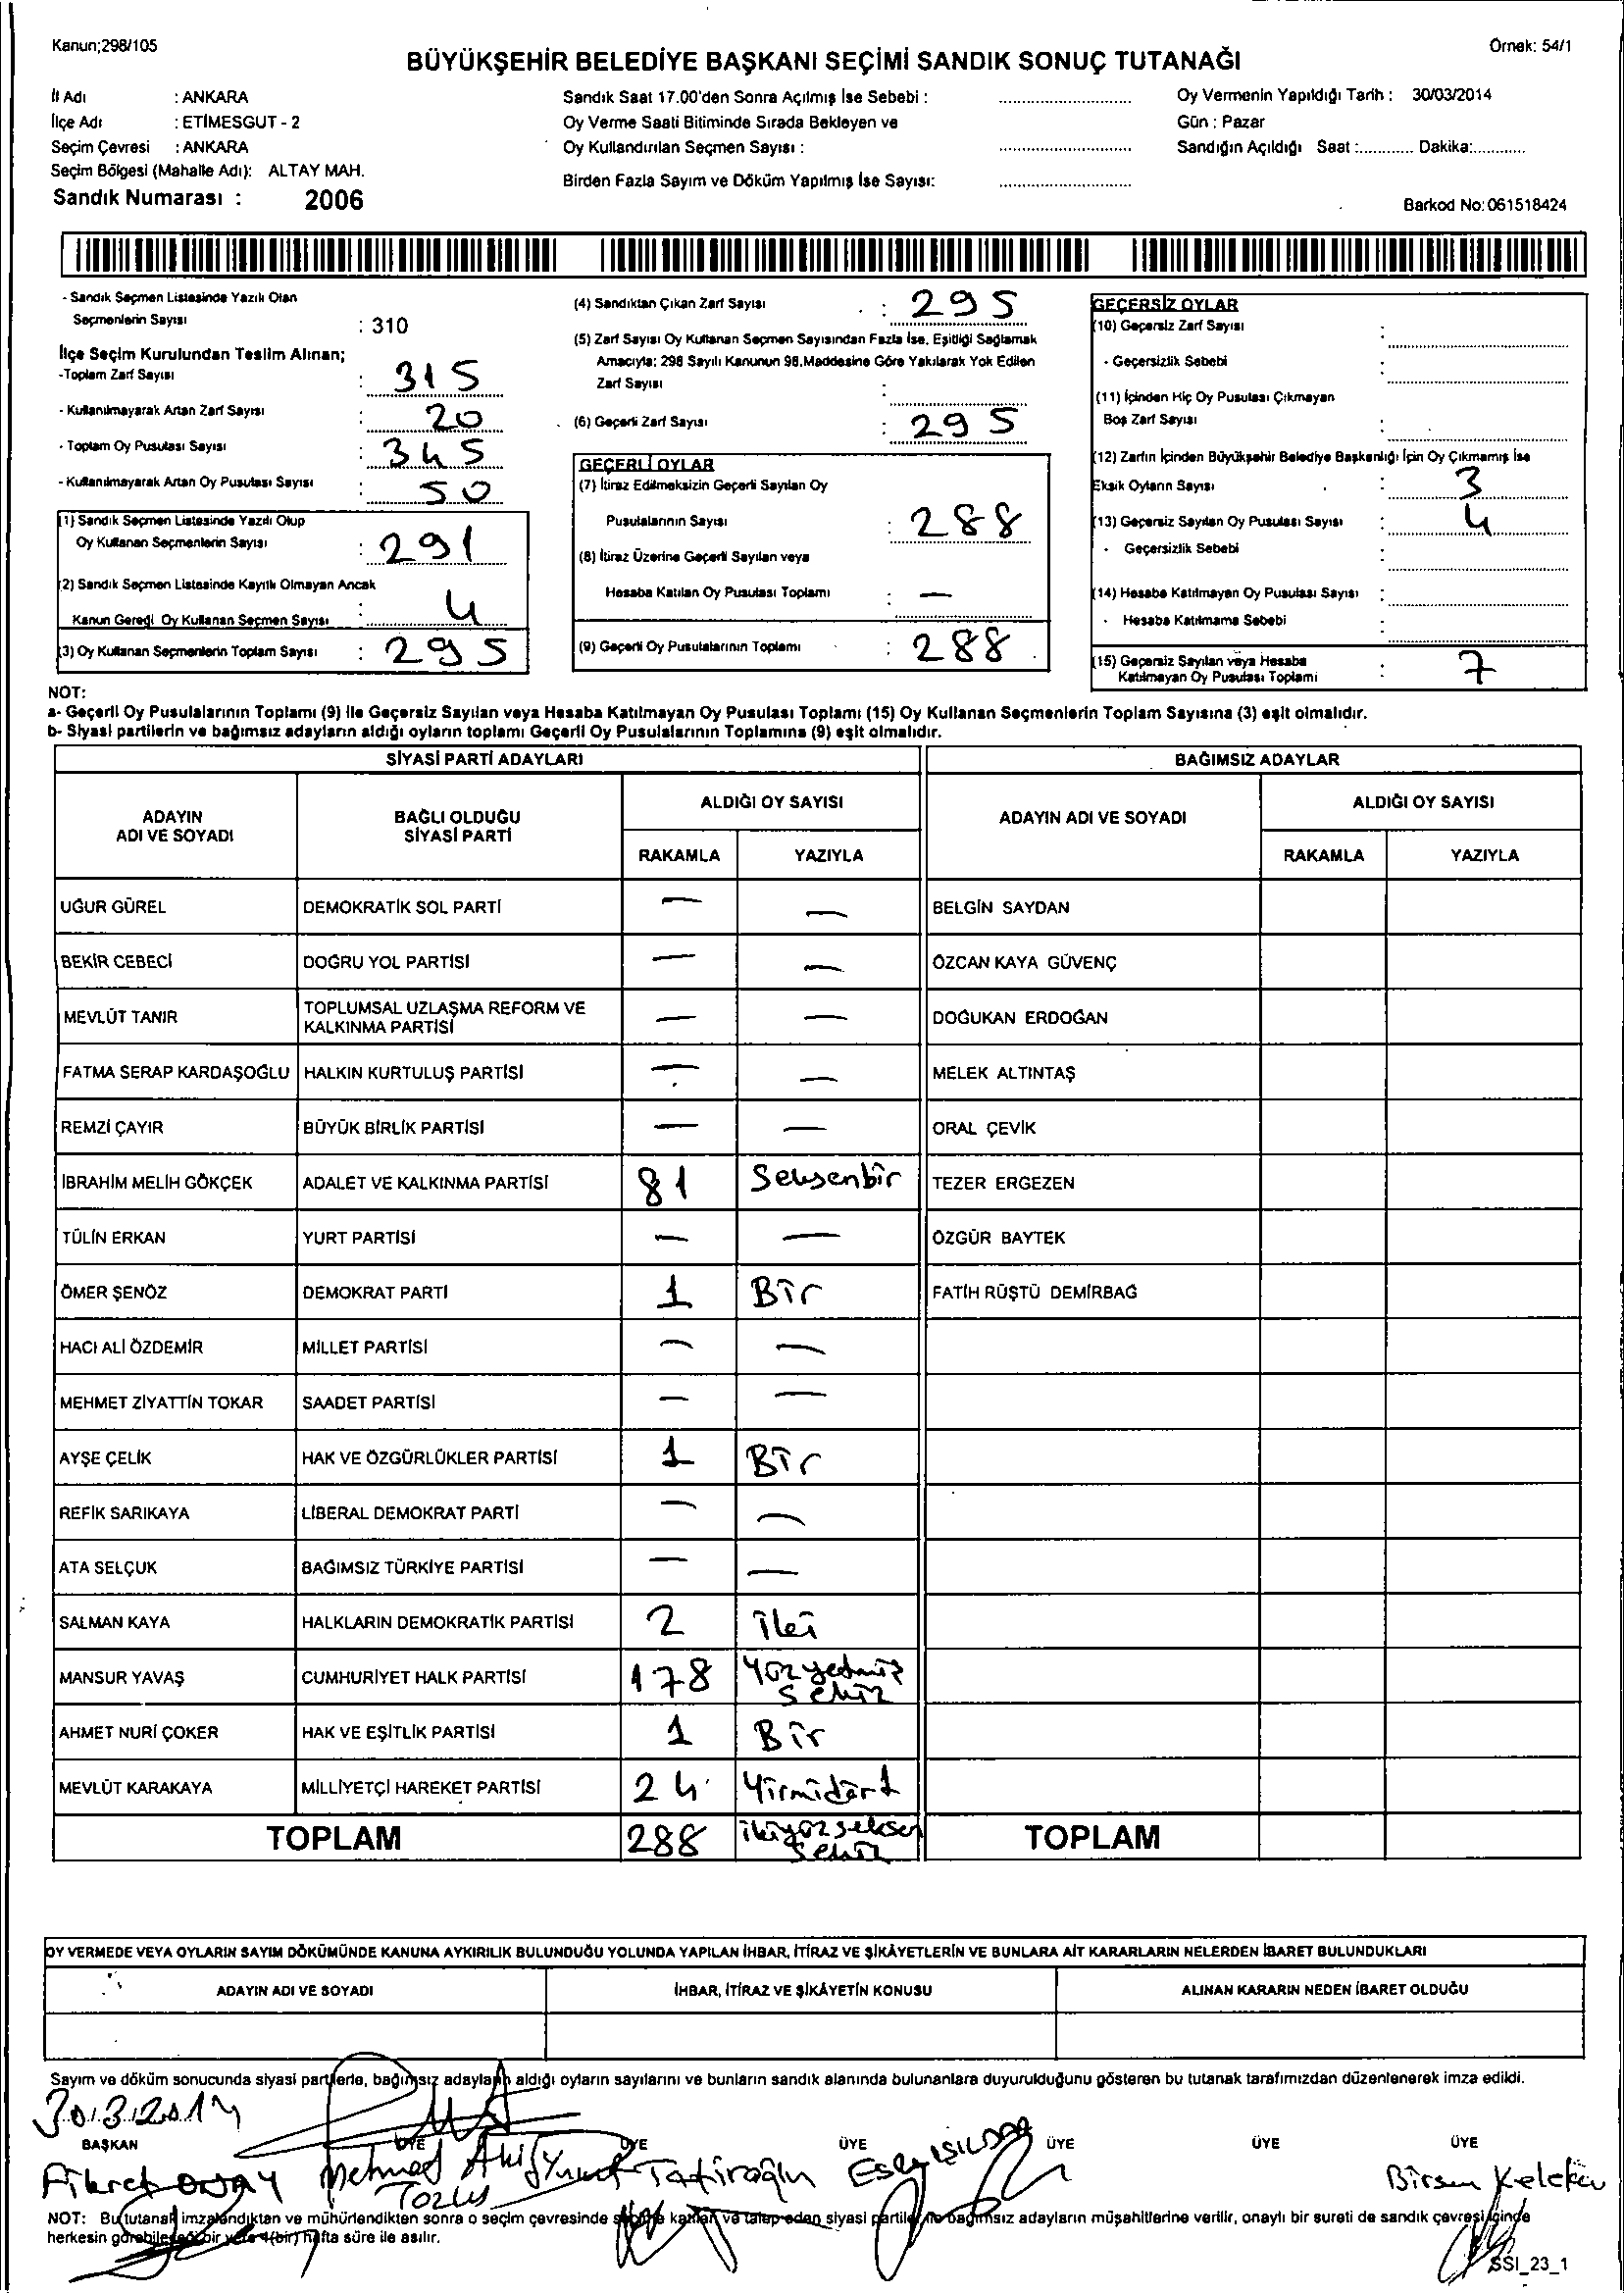 Kanun;298/105
Örnek: 54/1
BÜYÜKŞEHİR BELEDİYE BAŞKANI SEÇİMİ SANDIK SONUÇ TUTANAĞI
İl Adı : ANKARA
İlçe Adı : ETİMESGUT - 2
Seçim Çevresi : ANKARA
Seçim Bölgesi (Mahalle Adı): ALTAY MAH.
Sandık Numarası : 2006
Sandık Saat 17.00'den Sonra Açılmış İse Sebebi :
Oy Verme Saati Bitiminde Sırada Bekleyen ve
Oy Kullandırılan Seçmen Sayısı :
Birden Fazla Sayım ve Döküm Yapılmış İse Sayısı:
Oy Vermenin Yapıldığı Tarih : 30/03/2014
Gün : Pazar
Sandığın Açıldığı Saat :............ Dakika:............
Barkod No:061518424
- Sandık Seçmen Listesinde Yazılı Olan
Seçmenlerin Sayısı : 310
İlçe Seçim Kurulundan Teslim Alınan;
-Toplam Zarf Sayısı : 315
- Kullanılmayarak Artan Zarf Sayısı : 20
- Toplam Oy Pusulası Sayısı : 345
- Kullanılmayarak Artan Oy Pusulası Sayısı : 50
(1) Sandık Seçmen Listesinde Yazılı Olup
Oy Kullanan Seçmenlerin Sayısı : 291
(2) Sandık Seçmen Listesinde Kayıtlı Olmayan Ancak
Kanun Gereği Oy Kullanan Seçmen Sayısı : 4
(3) Oy Kullanan Seçmenlerin Toplam Sayısı : 295
(4) Sandıktan Çıkan Zarf Sayısı : 295
(5) Zarf Sayısı Oy Kullanan Seçmen Sayısından Fazla İse, Eşitliği Sağlamak
Amacıyla; 298 Sayılı Kanunun 98.Maddesine Göre Yakılarak Yok Edilen
Zarf Sayısı :
(6) Geçerli Zarf Sayısı : 295
GEÇERLİ OYLAR
(7) İtiraz Edilmeksizin Geçerli Sayılan Oy
Pusulalarının Sayısı : 288
(8) İtiraz Üzerine Geçerli Sayılan veya
Hesaba Katılan Oy Pusulası Toplamı : —
(9) Geçerli Oy Pusulalarının Toplamı : 288
GEÇERSİZ OYLAR
(10) Geçersiz Zarf Sayısı :
- Geçersizlik Sebebi :
(11) İçinden Hiç Oy Pusulası Çıkmayan
Boş Zarf Sayısı :
(12) Zarfın İçinden Büyükşehir Belediye Başkanlığı İçin Oy Çıkmamış İse
Eksik Oyların Sayısı : 3
(13) Geçersiz Sayılan Oy Pusulası Sayısı : 4
- Geçersizlik Sebebi :
(14) Hesaba Katılmayan Oy Pusulası Sayısı :
- Hesaba Katılmama Sebebi :
(15) Geçersiz Sayılan veya Hesaba
Katılmayan Oy Pusulası Toplamı : 7
NOT:
a- Geçerli Oy Pusulalarının Toplamı (9) ile Geçersiz Sayılan veya Hesaba Katılmayan Oy Pusulası Toplamı (15) Oy Kullanan Seçmenlerin Toplam Sayısına (3) eşit olmalıdır.
b- Siyasi partilerin ve bağımsız adayların aldığı oyların toplamı Geçerli Oy Pusulalarının Toplamına (9) eşit olmalıdır.
SİYASİ PARTİ ADAYLARI BAĞIMSIZ ADAYLAR
ADAYIN ADI VE SOYADI BAĞLI OLDUĞU SİYASİ PARTİ ALDIĞI OY SAYISI ADAYIN ADI VE SOYADI ALDIĞI OY SAYISI
RAKAMLA YAZIYLA RAKAMLA YAZIYLA
UĞUR GÜREL DEMOKRATİK SOL PARTİ — — BELGİN SAYDAN
BEKİR CEBECİ DOĞRU YOL PARTİSİ — — ÖZCAN KAYA GÜVENÇ
MEVLÜT TANIR TOPLUMSAL UZLAŞMA REFORM VE KALKINMA PARTİSİ — — DOĞUKAN ERDOĞAN
FATMA SERAP KARDAŞOĞLU HALKIN KURTULUŞ PARTİSİ — — MELEK ALTINTAŞ
REMZİ ÇAYIR BÜYÜK BİRLİK PARTİSİ — — ORAL ÇEVİK
İBRAHİM MELİH GÖKÇEK ADALET VE KALKINMA PARTİSİ 81 Seksenbir TEZER ERGEZEN
TÜLİN ERKAN YURT PARTİSİ — — ÖZGÜR BAYTEK
ÖMER ŞENÖZ DEMOKRAT PARTİ 1 Bir FATİH RÜŞTÜ DEMİRBAĞ
HACI ALİ ÖZDEMİR MİLLET PARTİSİ — —
MEHMET ZİYATTİN TOKAR SAADET PARTİSİ — —
AYŞE ÇELİK HAK VE ÖZGÜRLÜKLER PARTİSİ 1 Bir
REFİK SARIKAYA LİBERAL DEMOKRAT PARTİ — —
ATA SELÇUK BAĞIMSIZ TÜRKİYE PARTİSİ — —
SALMAN KAYA HALKLARIN DEMOKRATİK PARTİSİ 2 iki
MANSUR YAVAŞ CUMHURİYET HALK PARTİSİ 178 Yüzyetmiş sekiz
AHMET NURİ ÇOKER HAK VE EŞİTLİK PARTİSİ 1 Bir
MEVLÜT KARAKAYA MİLLİYETÇİ HAREKET PARTİSİ 24 Yirmidört
TOPLAM 288 ikiyüzseksen sekiz TOPLAM
OY VERMEDE VEYA OYLARIN SAYIM DÖKÜMÜNDE KANUNA AYKIRILIK BULUNDUĞU YOLUNDA YAPILAN İHBAR, İTİRAZ VE ŞİKÂYETLERİN VE BUNLARA AİT KARARLARIN NELERDEN İBARET BULUNDUKLARI
ADAYIN ADI VE SOYADI İHBAR, İTİRAZ VE ŞİKÂYETİN KONUSU ALINAN KARARIN NEDEN İBARET OLDUĞU
Sayım ve döküm sonucunda siyasi partilerle, bağımsız adayların aldığı oyların sayılarını ve bunların sandık alanında bulunanlara duyurulduğunu gösteren bu tutanak tarafımızdan düzenlenerek imza edildi.
30.3.2014
BAŞKAN ÜYE ÜYE ÜYE ÜYE ÜYE ÜYE
Fikret Mehmed Akif Birsen
NOT: Bu tutanak imzalandıktan ve mühürlendikten sonra o seçim çevresinde seçime katılan ve talep eden siyasi partiler ve bağımsız adayların müşahitlerine verilir, onaylı bir sureti de sandık çevresi içinde
herkesin görebileceği bir yere 1(bir) hafta süre ile asılır.
SSI_23_1